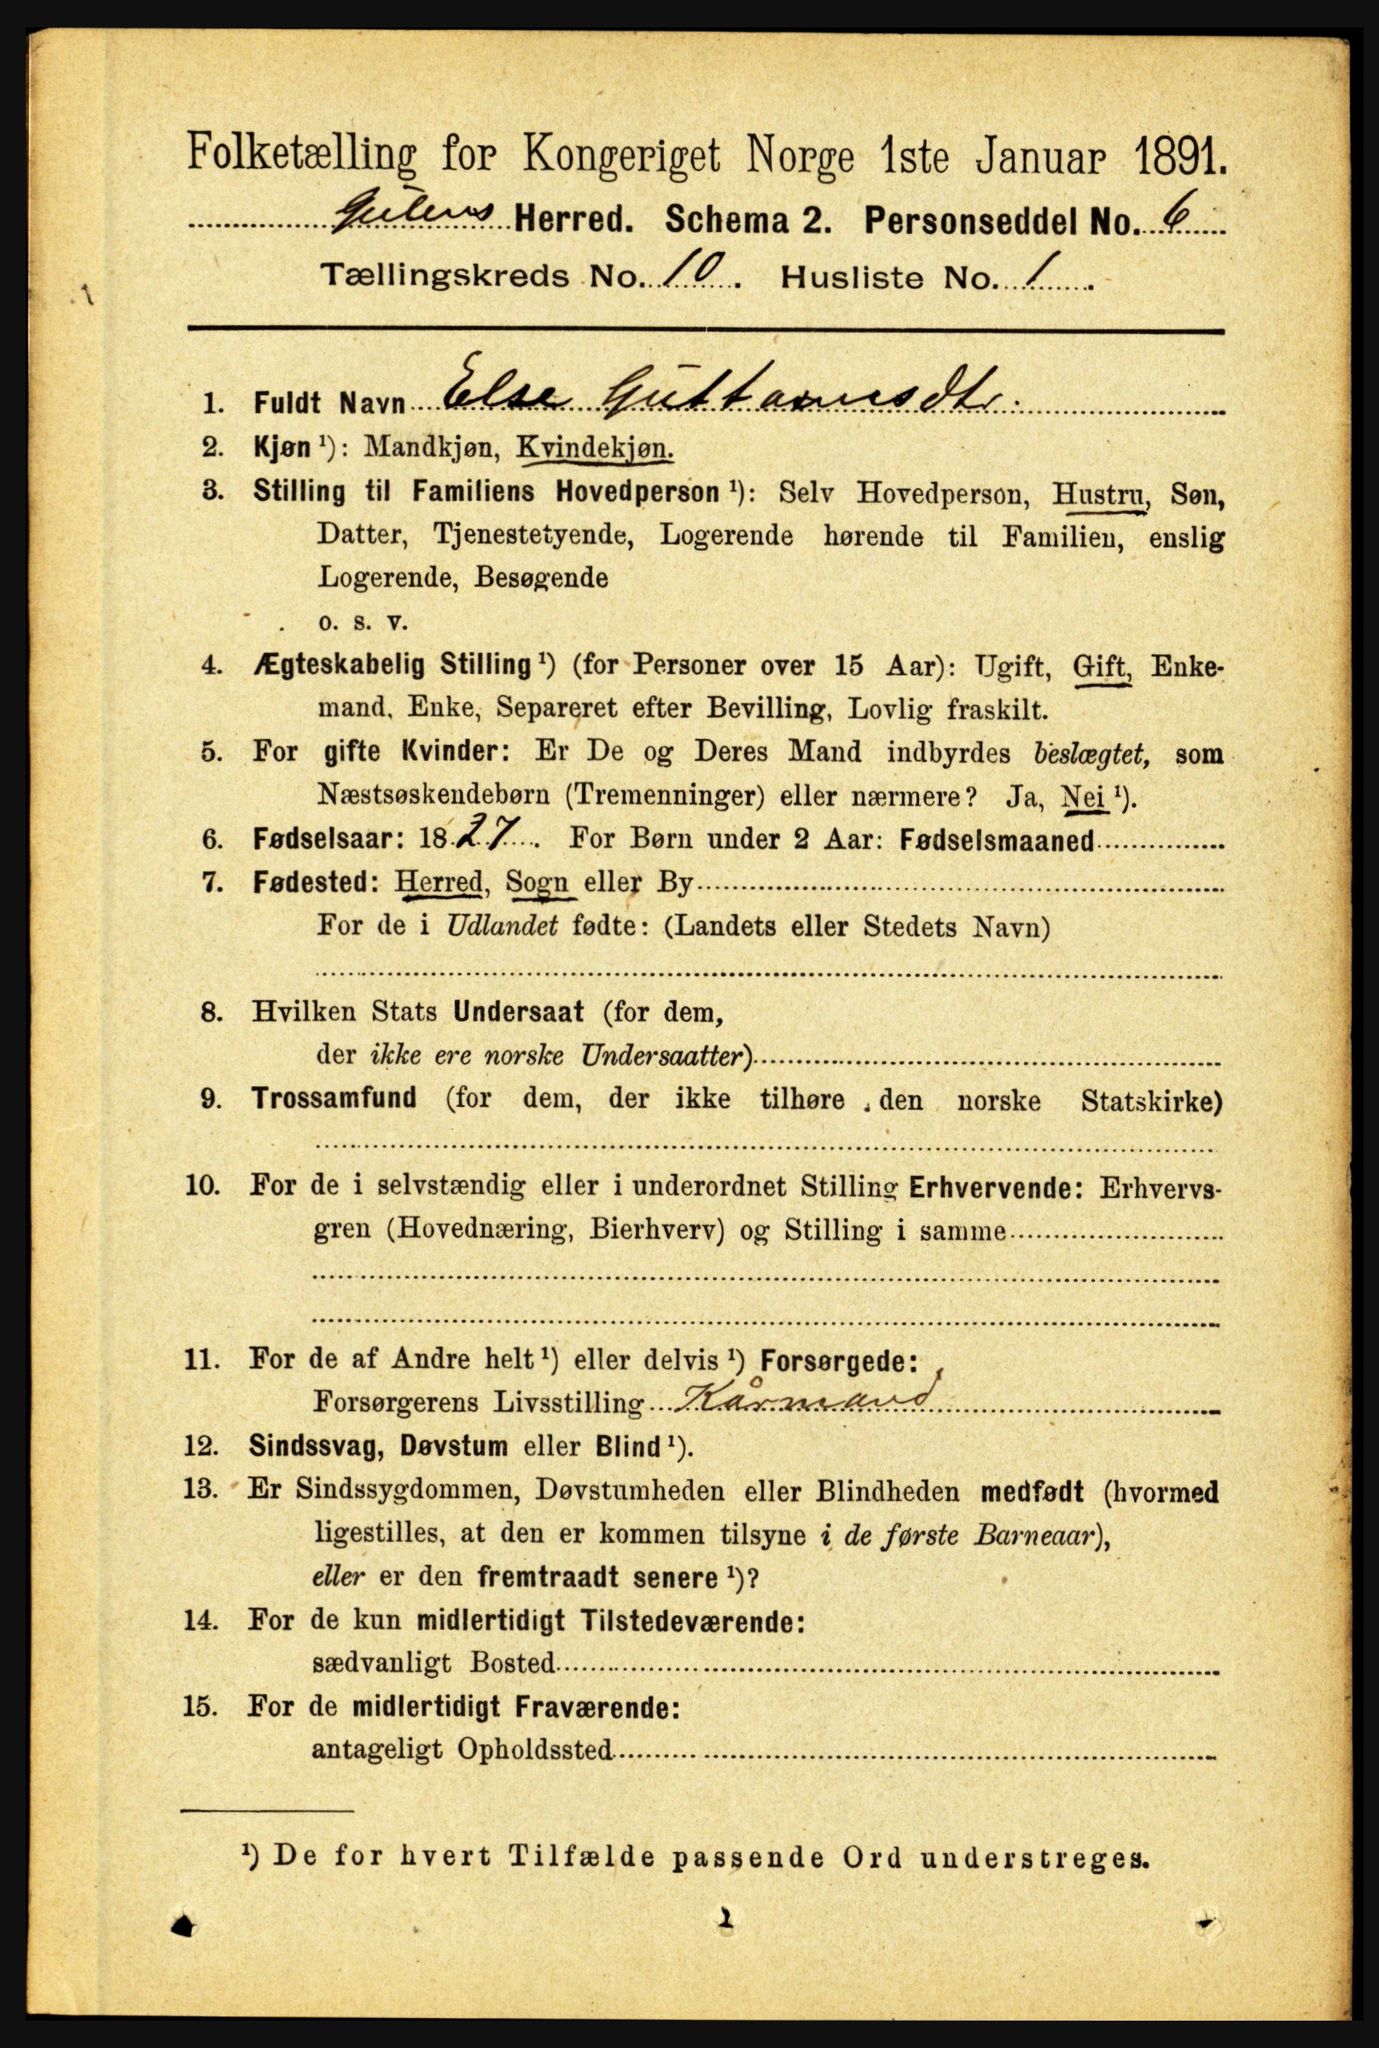 Folketælling for Kongeriget Norge 1ste Januar 1891.
Gulens Herred. Schema 2. Personseddel No. 6
Tællingskreds No. 10. Husliste No. 1.
1. Fuldt Navn Else Guttormsdtr.
2. Kjøn ¹): Mandkjøn, Kvindekjøn.
3. Stilling til Familiens Hovedperson ¹): Selv Hovedperson, Hustru, Søn,
Datter, Tjenestetyende, Logerende hørende til Familien, enslig
Logerende, Besøgende
o. s. v.
4. Ægteskabelig Stilling ¹) (for Personer over 15 Aar): Ugift, Gift, Enke-
mand, Enke, Separeret efter Bevilling, Lovlig fraskilt.
5. For gifte Kvinder: Er De og Deres Mand indbyrdes beslægtet, som
Næstsøskendebørn (Tremenninger) eller nærmere? Ja, Nei ¹).
6. Fødselsaar: 1827. For Børn under 2 Aar: Fødselsmaaned
7. Fødested: Herred, Sogn eller By
For de i Udlandet fødte: (Landets eller Stedets Navn)
8. Hvilken Stats Undersaat (for dem,
der ikke ere norske Undersaatter)
9. Trossamfund (for dem, der ikke tilhøre den norske Statskirke)
10. For de i selvstændig eller i underordnet Stilling Erhvervende: Erhvervs-
gren (Hovednæring, Bierhverv) og Stilling i samme
11. For de af Andre helt ¹) eller delvis ¹) Forsørgede:
Forsørgerens Livsstilling Kårmand
12. Sindssvag, Døvstum eller Blind ¹).
13. Er Sindssygdommen, Døvstumheden eller Blindheden medfødt (hvormed
ligestilles, at den er kommen tilsyne i de første Barneaar),
eller er den fremtraadt senere ¹)?
14. For de kun midlertidigt Tilstedeværende:
sædvanligt Bosted
15. For de midlertidigt Fraværende:
antageligt Opholdssted
¹) De for hvert Tilfælde passende Ord understreges.